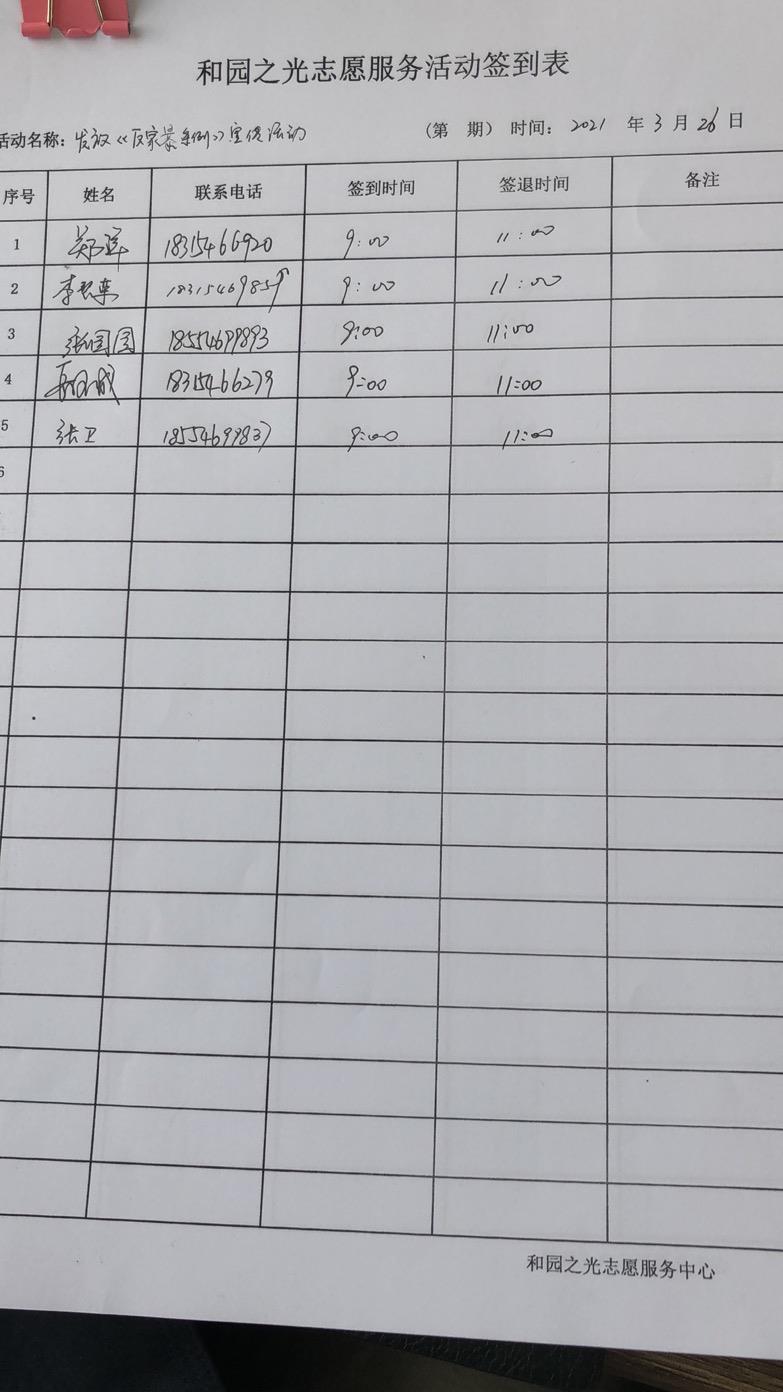 和园之光志愿服务活动签到表
活动名称：发放《反家暴条例》宣传活动 （第 期） 时间：2021 年 3 月 26 日
序号 姓名 联系电话 签到时间 签退时间 备注
1 郑萍 18315466920 9:00 11:00
2 李 1831546985 9:00 11:00
3 张园园 18554699893 9:00 11:00
4 18315466279 9:00 11:00
5 张卫 18554699837 9:00 11:00
6
和园之光志愿服务中心